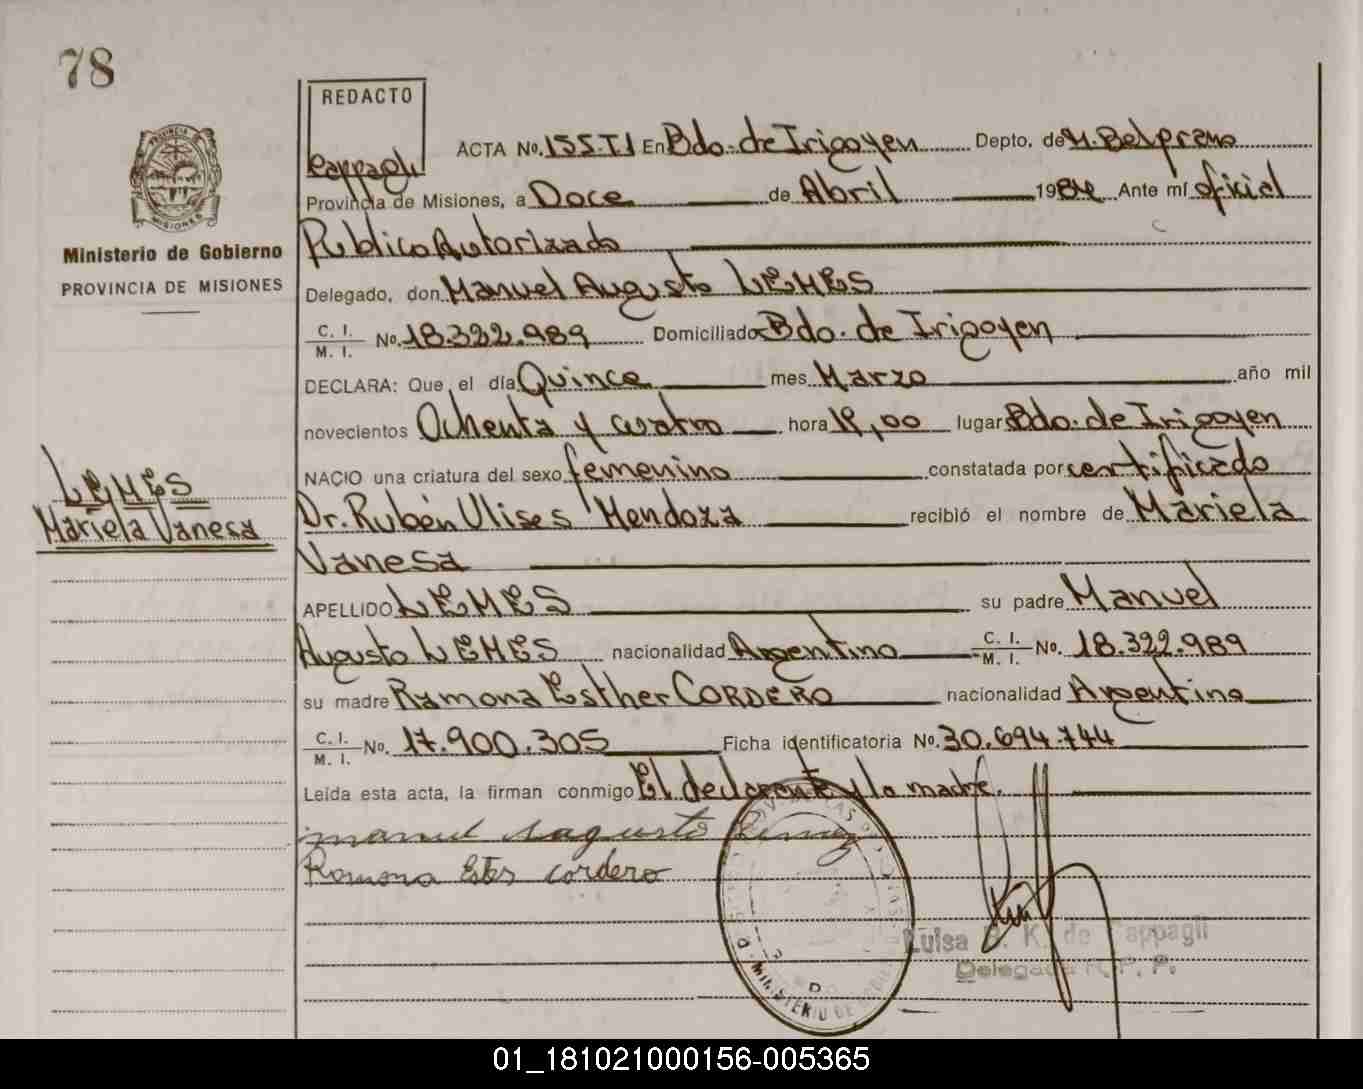 78
REDACTO
Cappagli
ACTA No. 155.T1 En Bdo. de Irigoyen Depto. de M. Belgrano
Provincia de Misiones, a Doce de Abril 1984 Ante mí oficial
Publico Autorizado
Delegado, don Manuel Augusto LEMES
C. I.
M. I. No. 18.322.989 Domiciliado Bdo. de Irigoyen
DECLARA: Que el día Quince mes Marzo año mil
novecientos Ochenta y cuatro hora 19,00 lugar Bdo. de Irigoyen
NACIO una criatura del sexo femenino constatada por certificado
Dr. Rubén Ulises Mendoza recibió el nombre de Mariela
Vanesa
APELLIDO LEMES su padre Manuel
Augusto LEMES nacionalidad Argentino C. I. M. I. No. 18.322.989
su madre Ramona Esther CORDERO nacionalidad Argentina
C. I.
M. I. No. 17.900.305 Ficha identificatoria No. 30.694.744
Leída esta acta, la firman conmigo El declarente y la madre.
manuel augusto lemez
Ramona Ester cordero
Luisa K. de Cappagli
Delegada R. P. P.
PROVINCIA DE
MISIONES
Ministerio de Gobierno
PROVINCIA DE MISIONES
LEMES
Mariela Vanesa
MINISTERIO DE GOBIERNO
01_181021000156-005365